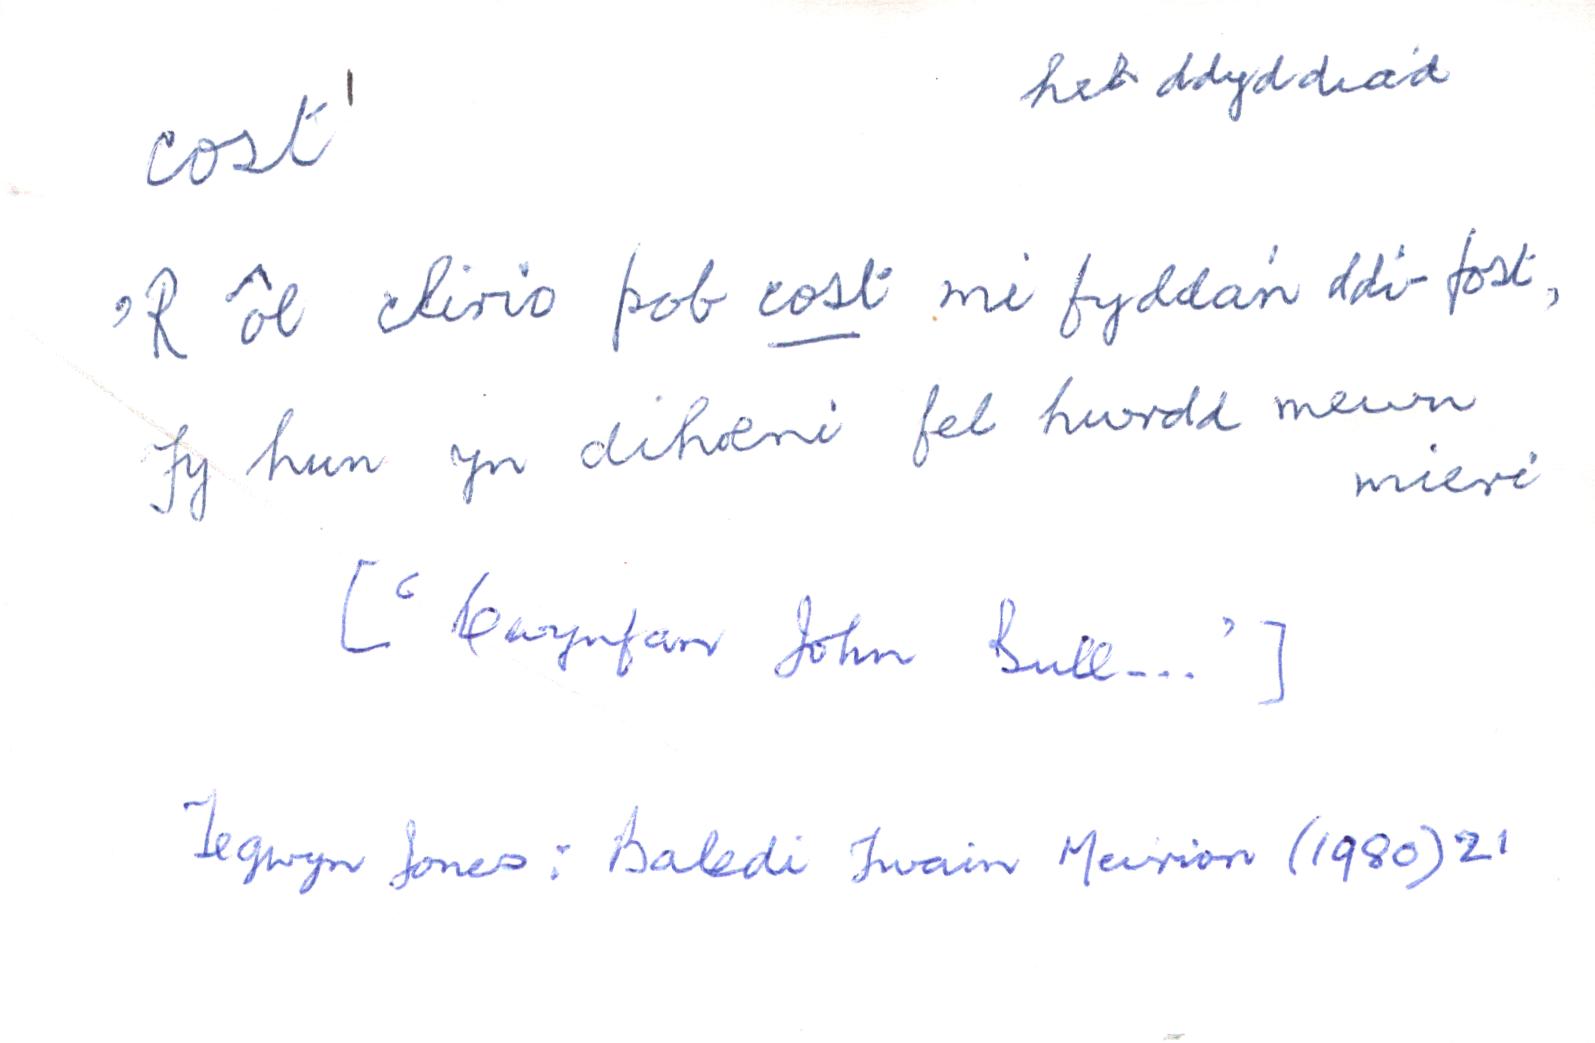 heb ddyddiad
cost¹
'R ôl clirio pob cost mi fyddan ddi-fost,
fy hun yn dihoeni fel hwrdd mewn
mieri
[‘Cwynfan John Bull...’]
Tegwyn Jones: Baledi Ywain Meirion (1980) 21